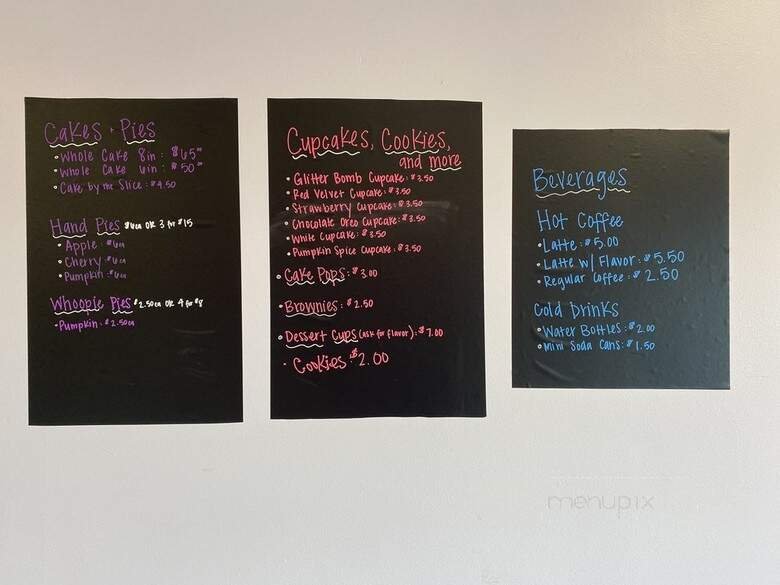 Cakes + Pies
• Whole Cake 8in: $65⁰⁰
• Whole Cake 6in: $50⁰⁰
• Cake by the Slice: $4.50
Hand Pies $6ea OR 3 for $15
• Apple: $6ea
• Cherry: $6ea
• Pumpkin: $6ea
Whoopie Pies $2.50ea OR 4 for $8
• Pumpkin: $2.50ea
Cupcakes, Cookies,
and more
• Glitter Bomb Cupcake: $3.50
• Red Velvet Cupcake: $3.50
• Strawberry Cupcake: $3.50
• Chocolate Oreo Cupcake: $3.50
• White Cupcake: $3.50
• Pumpkin Spice Cupcake: $3.50
• Cake Pops: $3.00
• Brownies: $2.50
• Dessert Cups (ask for flavor): $7.00
• Cookies: $2.00
Beverages
Hot Coffee
• Latte: $5.00
• Latte w/ Flavor: $5.50
• Regular Coffee: $2.50
Cold Drinks
• Water Bottles: $2.00
• Mini Soda Cans: $1.50
menupix